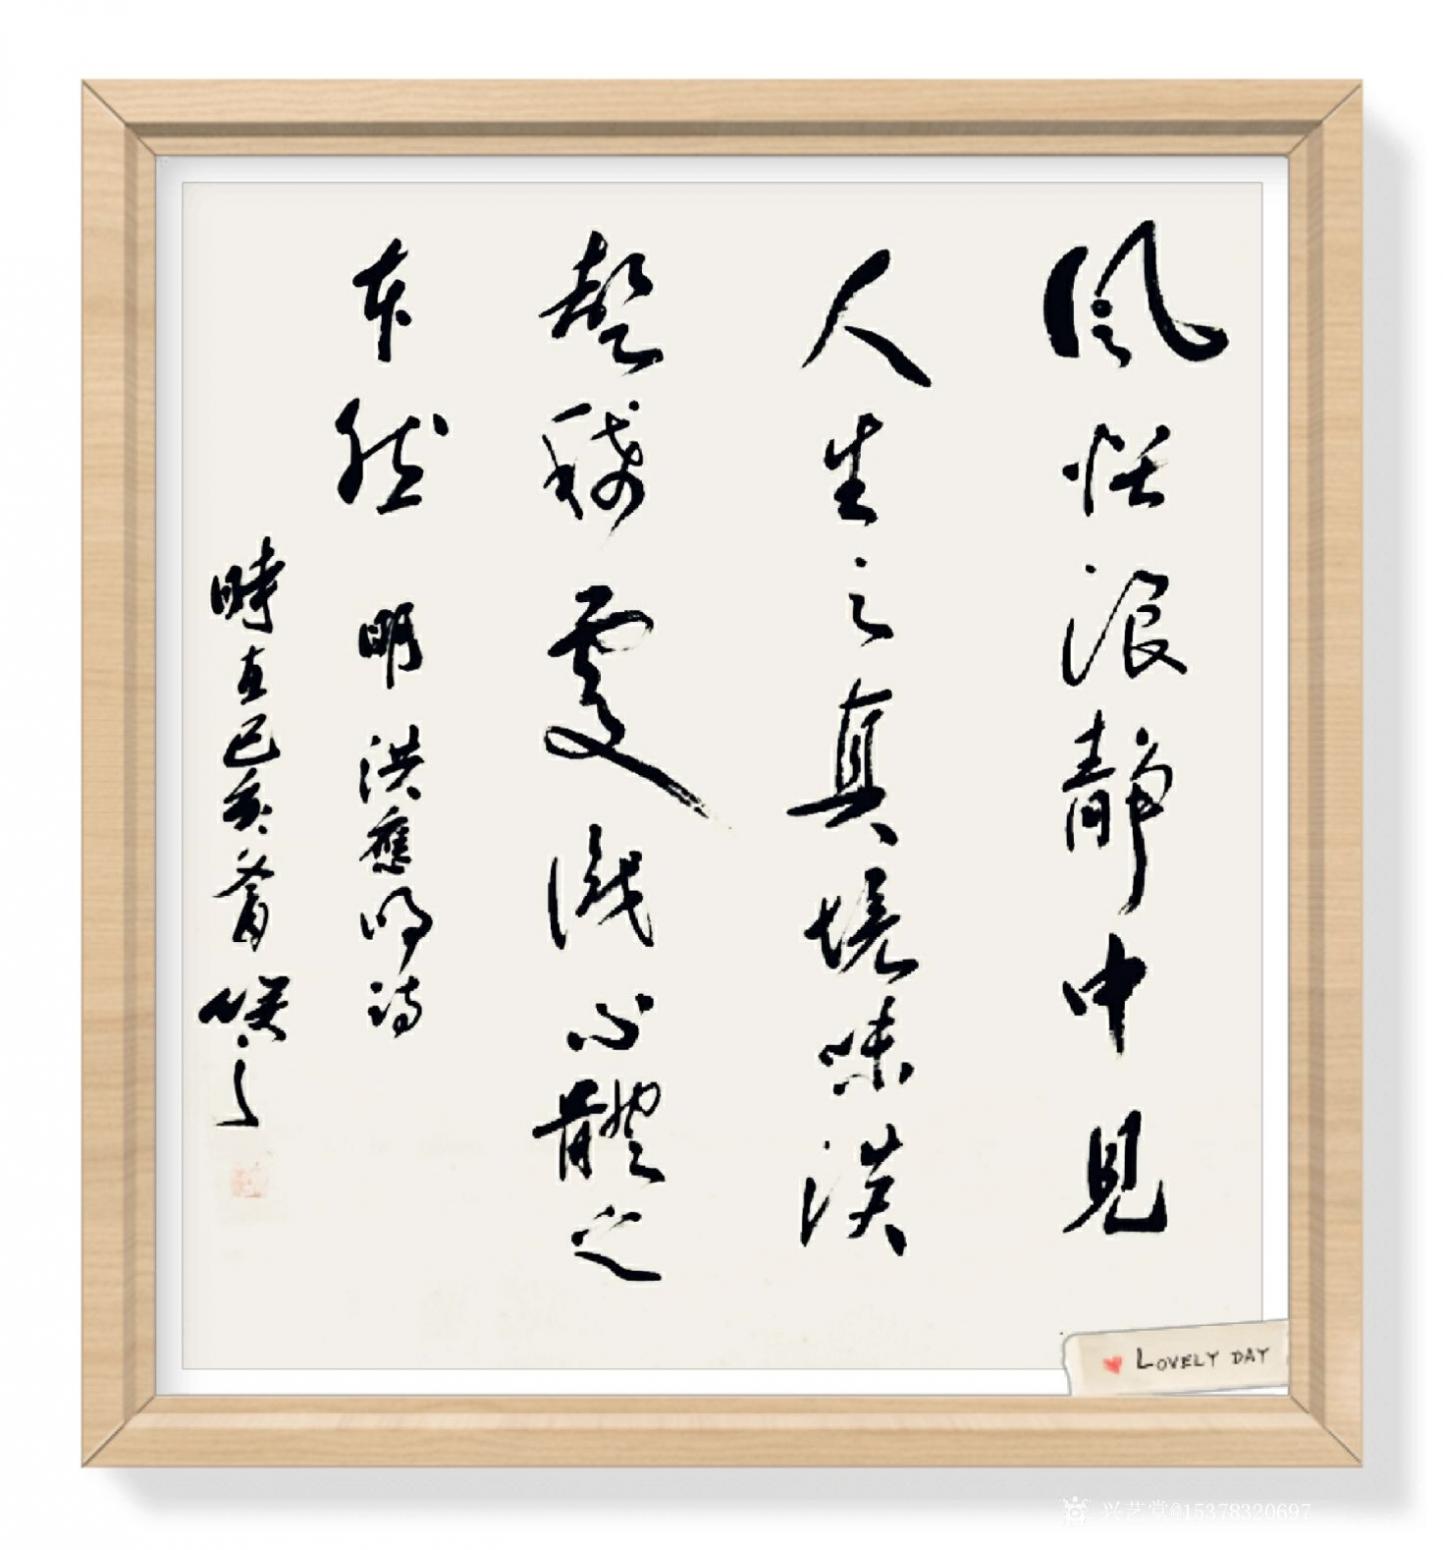 風恬浪靜中見
人生之真境味淡
聲稀處識心體之
本然 明 洪應明詩
時在己亥春
LOVELY DAY
兴艺堂@15378320697